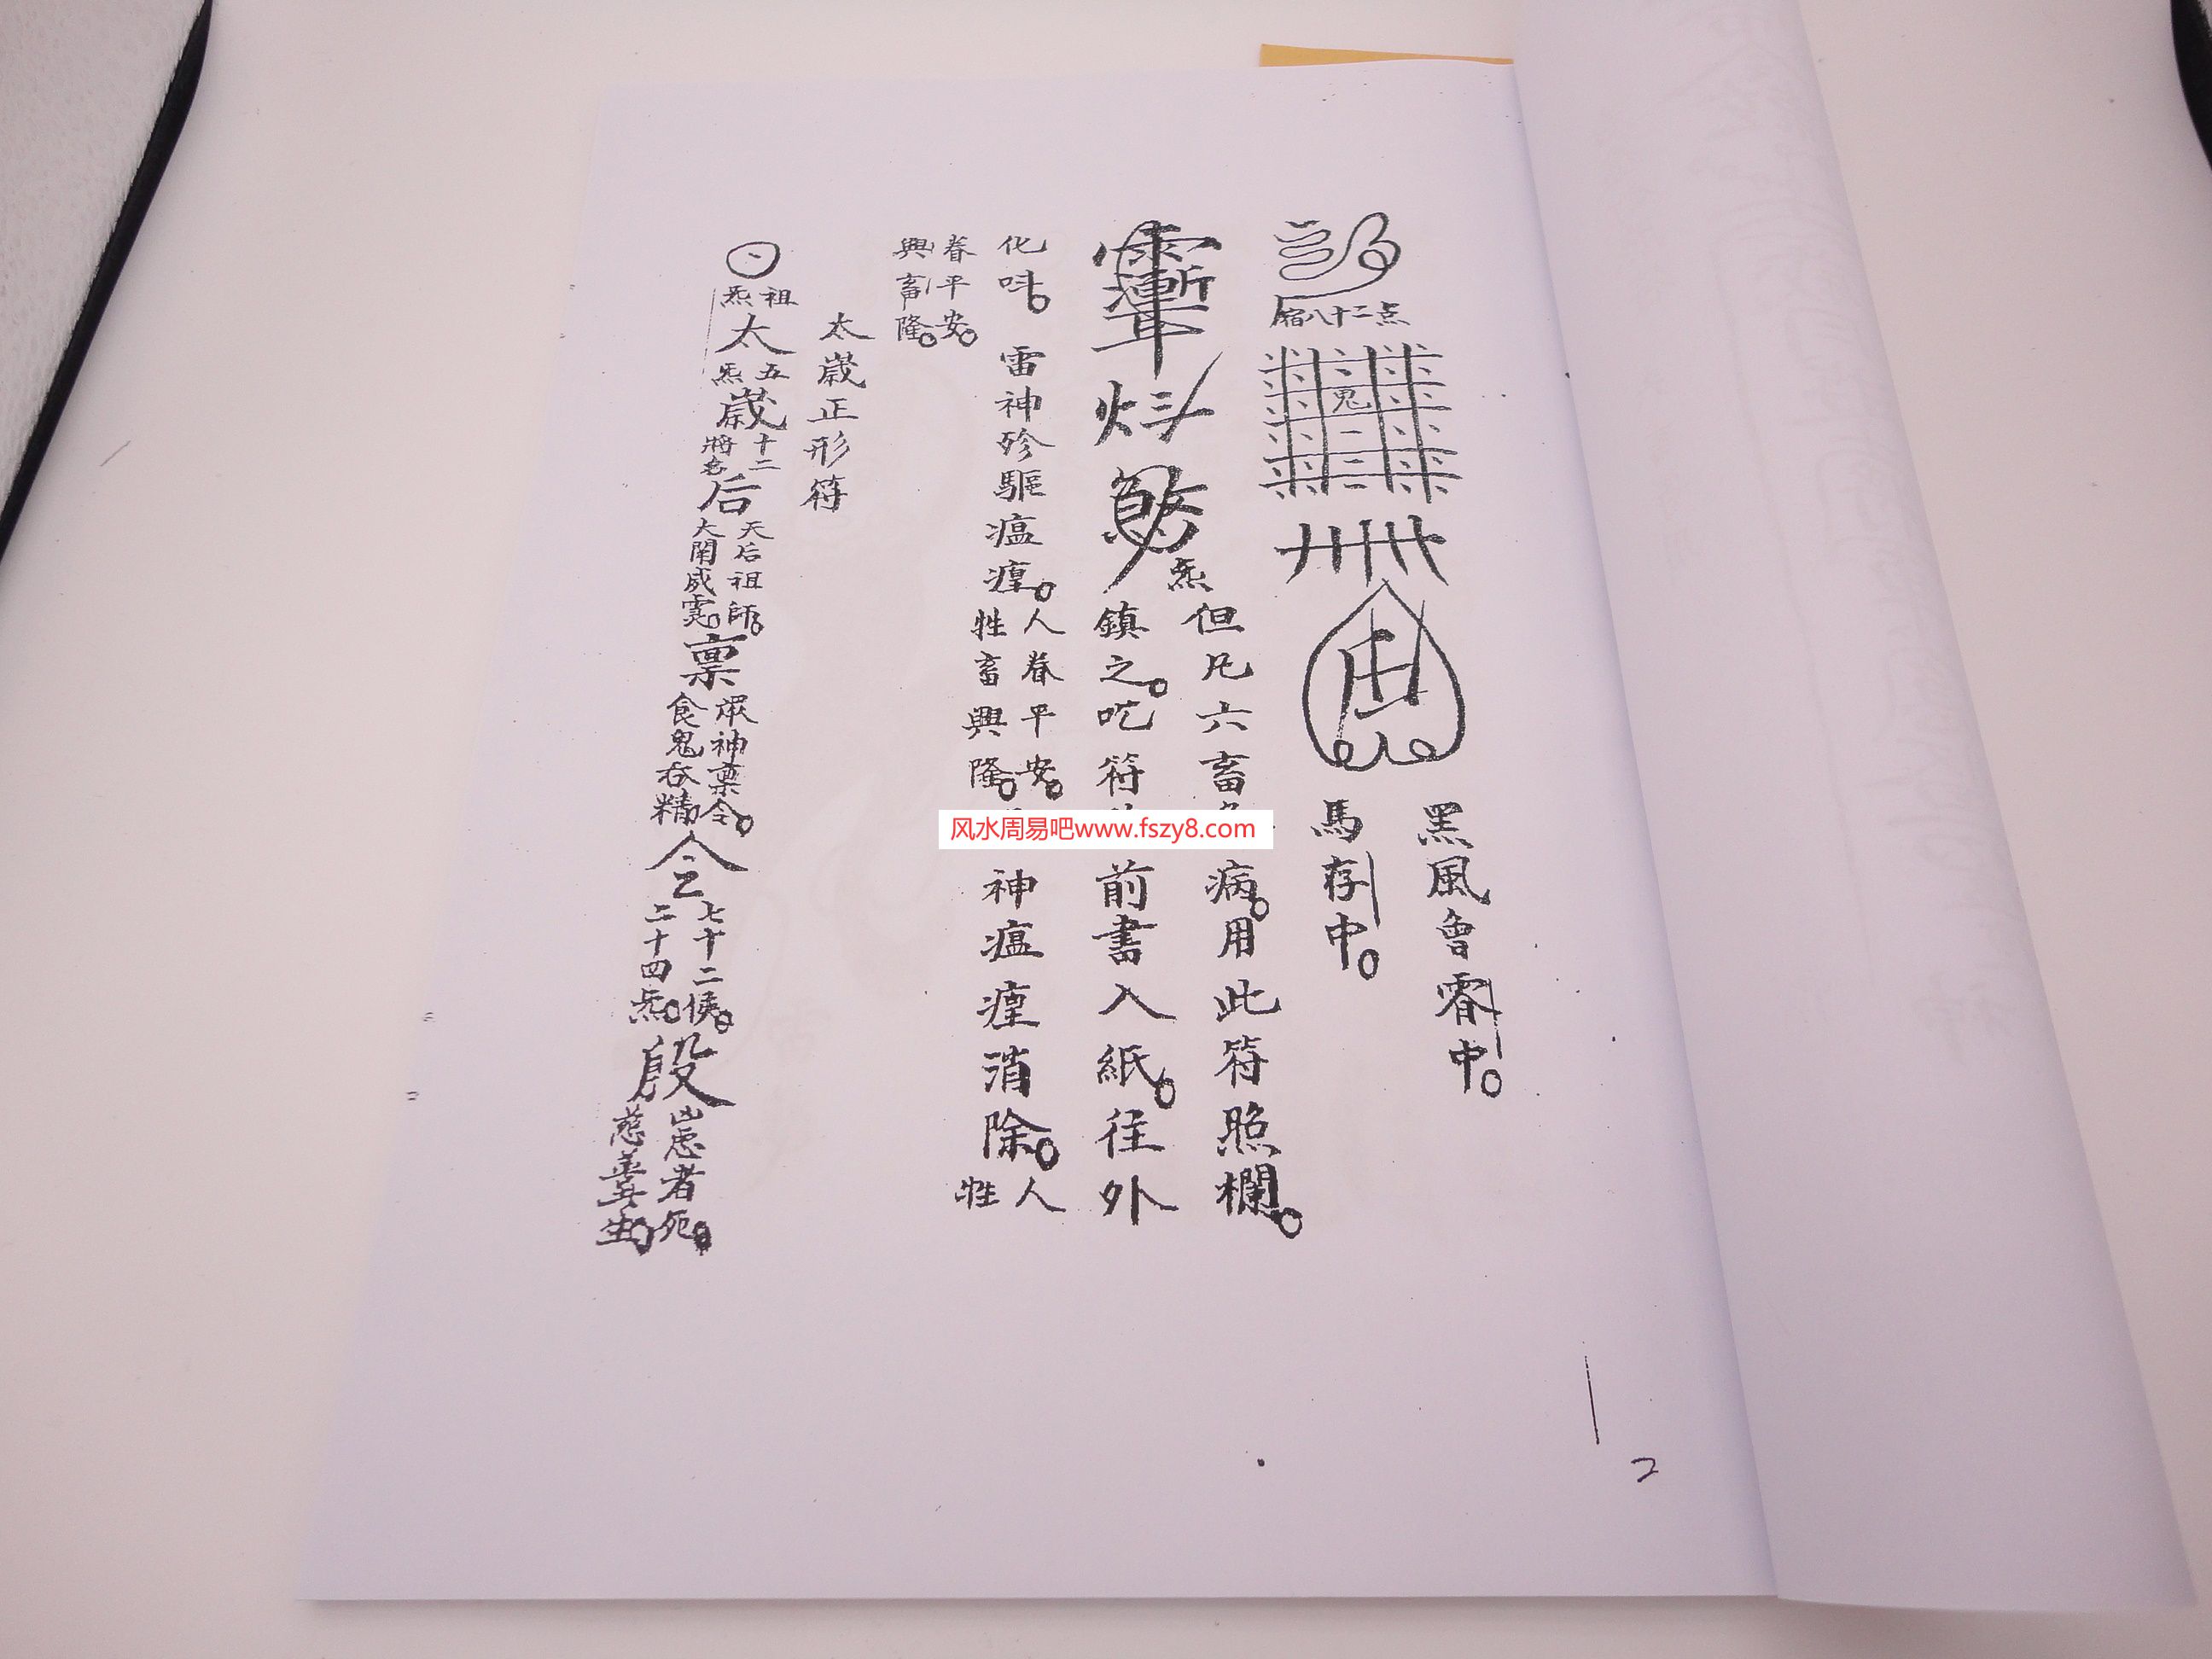 点二十八宿
鬼
一
二
三
黑風會
中。
馬存中。
炁
但凡六畜
病。用此符照欄。
鎮之。吃符
前書入紙。往外
化吽。
雷神殄驅瘟瘴。
人眷平安。
牲畜興隆。
神瘟瘴消除。
人眷平安。
牲畜興隆。
太歲正形符
祖炁
太
五炁
歲
十二
將
后
天后祖師。
大開威靈。
禀
眾神禀令。
食鬼吞精。
令
七十二候。
二十四炁。
殷
者死。
慈善生。
2
风水周易吧www.fszy8.com